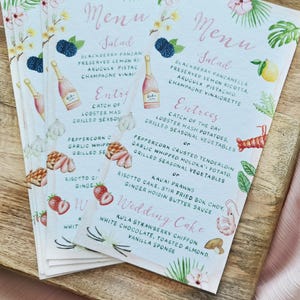 Menu
Salad
BLACKBERRY PANZANELLA
PRESERVED LEMON RICOTTA
ARUGULA PISTACHIO
CHAMPAGNE VINAIGRETTE
Entrees
CATCH OF
LOBSTER MASHED POTATOES,
GRILLED SEASONAL VEGETABLES
OR
PEPPERCORN CRUSTED TENDERLOIN
GARLIC WHIPPED MOLOKAI POTATO,
GRILLED SEASONAL VEGETABLES
OR
RISOTTO CAKE, STIR FRIED BOK CHOY,
GINGER HOISIN BUTTER SAUCE
Wedding Cake
KULA STRAWBERRY CHIFFON
WHITE CHOCOLATE, TOASTED ALMOND,
VANILLA SPONGE
Menu
Salad
BLACKBERRY
PRESERVED LEMON
ARUGULA PISTACH
CHAMPAGNE VINA
Entre
CATCH OF
LOBSTER MAS
GRILLED SEASO
PEPPERCORN C
GARLIC WHIPPE
GRILLED SEA
RISOTTO C
GINGER